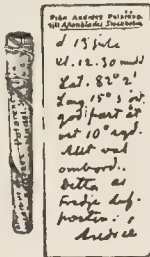 Från Andrées Polarexp.
till Aftonbladet Stockholm
d 13 juli
kl. 12.30 midd
Lat. 82° 2'
Long 15° 5 ost.
god fart åt
ost 10° syd.
Allt väl
ombord.
Detta är
tredje duf-
posten.
Andrée